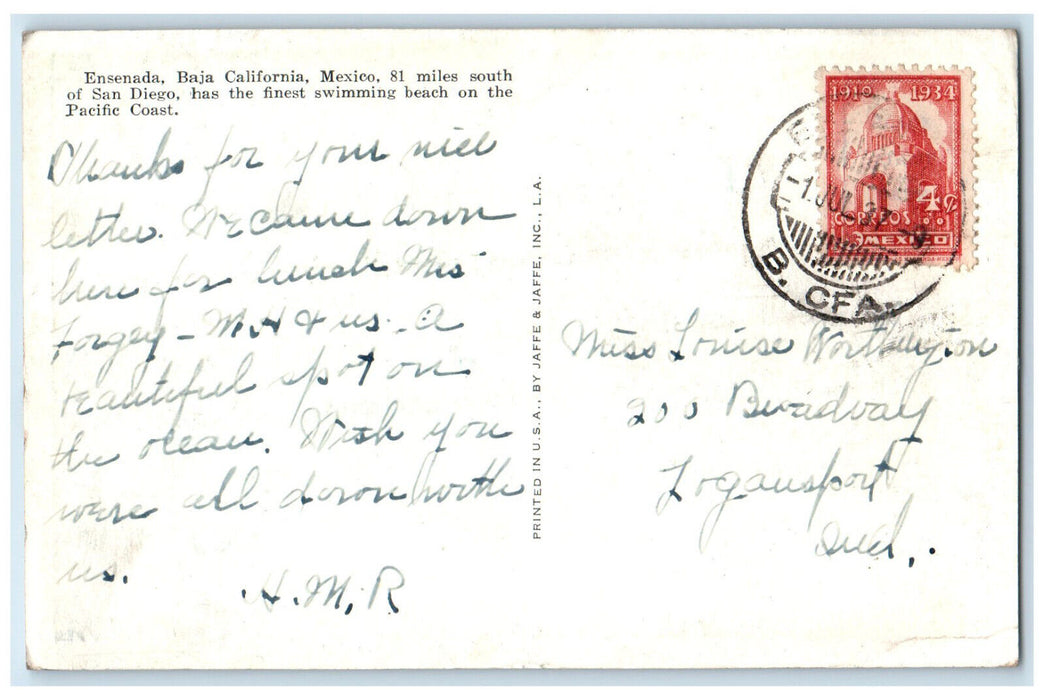 Ensenada, Baja California, Mexico, 81 miles south
of San Diego, has the finest swimming beach on the
Pacific Coast.
Thanks for your nice
letter. We came down
here for lunch Mrs
Forgey - M.H & us. A
beautiful spot on
the ocean. Wish you
were all down with
us.
H.M.R
PRINTED IN U.S.A., BY JAFFE & JAFFE, INC., L.A.
1910 1934
4¢
CORREOS
MEXICO
1 JUL 37
B. CFA.
Miss Louise Worthington
200 Broadway
Logansport
Ind.